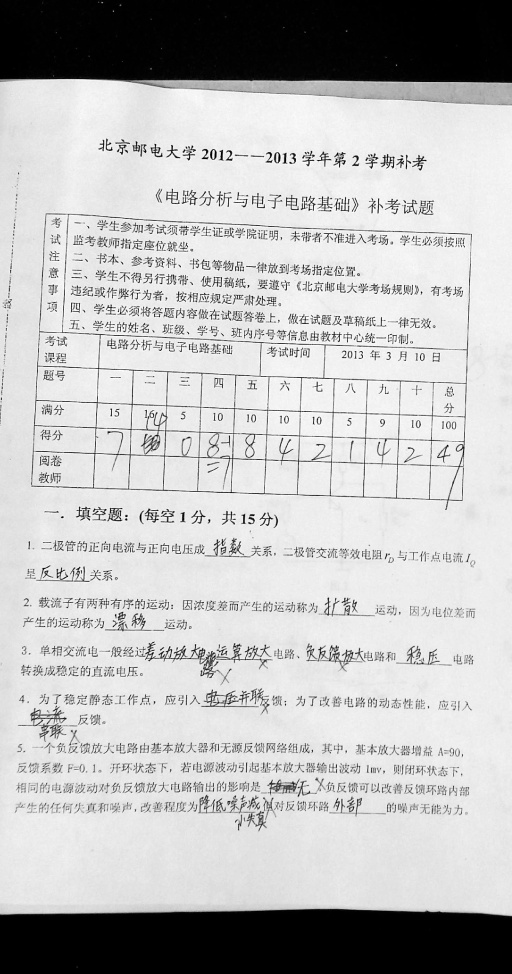 北京邮电大学2012——2013学年第2学期补考
《电路分析与电子电路基础》补考试题
考试注意事项
一、学生参加考试须带学生证或学院证明，未带者不准进入考场。学生必须按照
监考教师指定座位就坐。
二、书本、参考资料、书包等物品一律放到考场指定位置。
三、学生不得另行携带、使用稿纸，要遵守《北京邮电大学考场规则》，有考场
违纪或作弊行为者，按相应规定严肃处理。
四、学生必须将答题内容做在试题答卷上，做在试题及草稿纸上一律无效。
五、学生的姓名、班级、学号、班内序号等信息由教材中心统一印制。
考试课程 电路分析与电子电路基础 考试时间 2013 年 3 月 10 日
题号 一 二 三 四 五 六 七 八 九 十 总分
满分 15 16 5 10 10 10 10 5 9 10 100
14
得分 7 0 8-1 8 4 2 1 4 2 49
=7
阅卷教师
一．填空题：(每空1分，共15分)
1. 二极管的正向电流与正向电压成 指数 关系，二极管交流等效电阻 rD 与工作点电流 IQ
呈 反比例 关系。
2. 载流子有两种有序的运动：因浓度差而产生的运动称为 扩散 运动，因为电位差而
产生的运动称为 漂移 运动。
3．单相交流电一般经过 差动放大电路 运算放大 电路、 负反馈放大 电路和 稳压 电路
转换成稳定的直流电压。
4．为了稳定静态工作点，应引入 电压并联 反馈；为了改善电路的动态性能，应引入
电流串联 反馈。
5．一个负反馈放大电路由基本放大器和无源反馈网络组成，其中，基本放大器增益 A=90，
反馈系数 F=0.1。开环状态下，若电源波动引起基本放大器输出波动 1mv，则闭环状态下，
相同的电源波动对负反馈放大电路输出的影响是 无 负反馈可以改善反馈环路内部
产生的任何失真和噪声，改善程度为 降低噪声减小失真 对反馈环路 外部 的噪声无能为力。